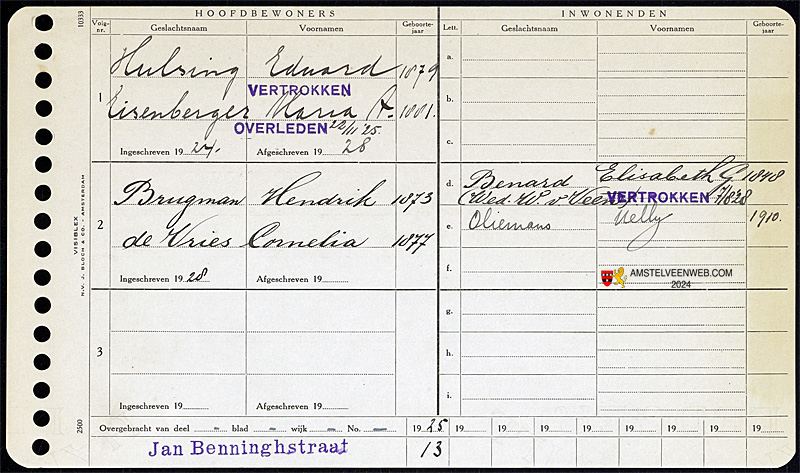 HOOFDBEWONERS INWONENDEN
Volg-nr. Geslachtsnaam Voornamen Geboorte-jaar Lett. Geslachtsnaam Voornamen Geboorte-jaar
10333
Hulsing Eduard 1879
VERTROKKEN
1 Eisenberger Maria A. 1881.
OVERLEDEN 22/11 '25
Ingeschreven 19 24. Afgeschreven 19 28
a.
b.
c.
2 Brugman Hendrik 1873
de Vries Cornelia 1877
Ingeschreven 19 28 Afgeschreven 19
d. Benard Elisabeth G 1848
(Wed. W. v Veen) VERTROKKEN 7/8 '28
e. Oliemans Nelly 1910.
f.
AMSTELVEENWEB.COM
2024
3
Ingeschreven 19 Afgeschreven 19
g.
h.
i.
VISIBLEX
N.V. J. BLOCH & CO. - AMSTERDAM
2500
Overgebracht van deel - blad - wijk - No. - 19 25 19 19 19 19 19 19 19
Jan Benninghstraat 13